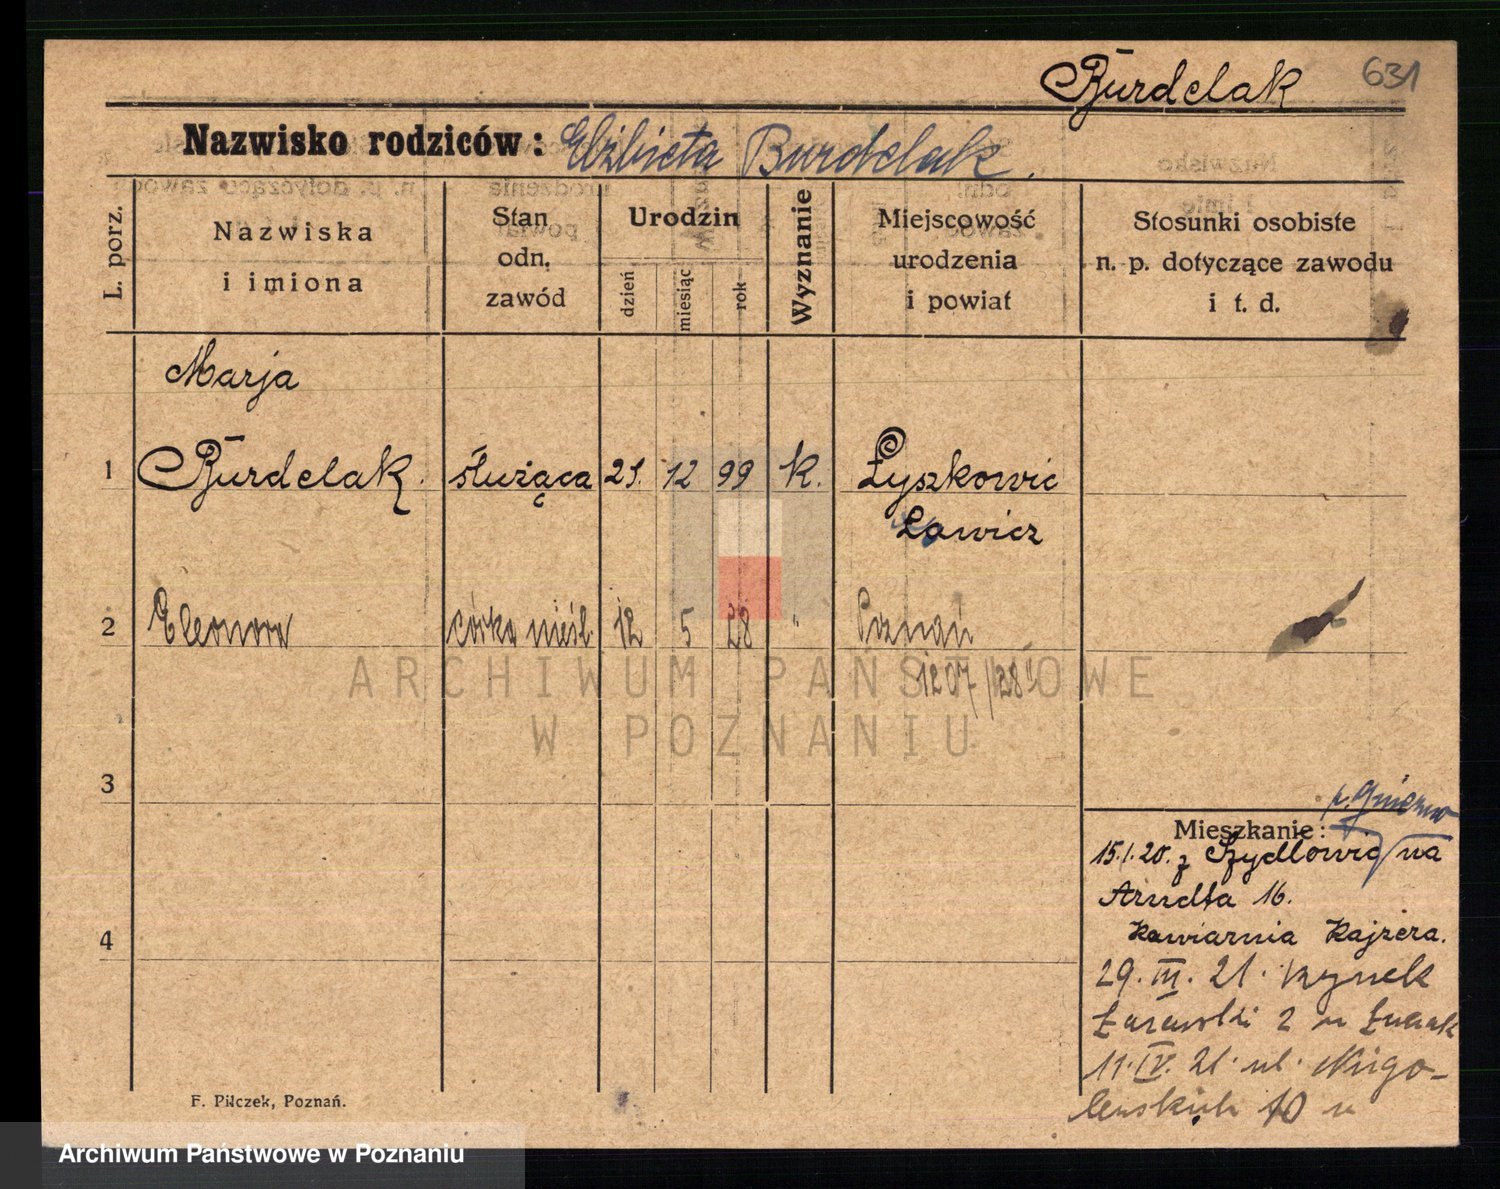 Burdelak 631
Nazwisko rodziców: Elżbieta Burdelak.
L. porz.
Nazwiska
i imiona
Stan
odn.
zawód
Urodzin
dzień
miesiąc
rok
Wyznanie
Miejscowość
urodzenia
i powiat
Stosunki osobiste
n. p. dotyczące zawodu
i t. d.
Marja
1 Burdelak. służąca 21. 12 99 k. Łyszkowic
Łowicz
2 Eleonora córka nieśl. 12 5 28 " Poznań
1207/28
3
4
p. Gniezno
Mieszkanie:
15.1.20. z Szydłowic na
Arndta 16.
Kawiarnia Kajzera.
29. III. 21. Rynek
Łazarski 2 u
11. IV. 21. ul. Niego-
lewskich 10 u
F. Pilczek, Poznań.
ARCHIWUM PAŃSTWOWE
W POZNANIU
Archiwum Państwowe w Poznaniu